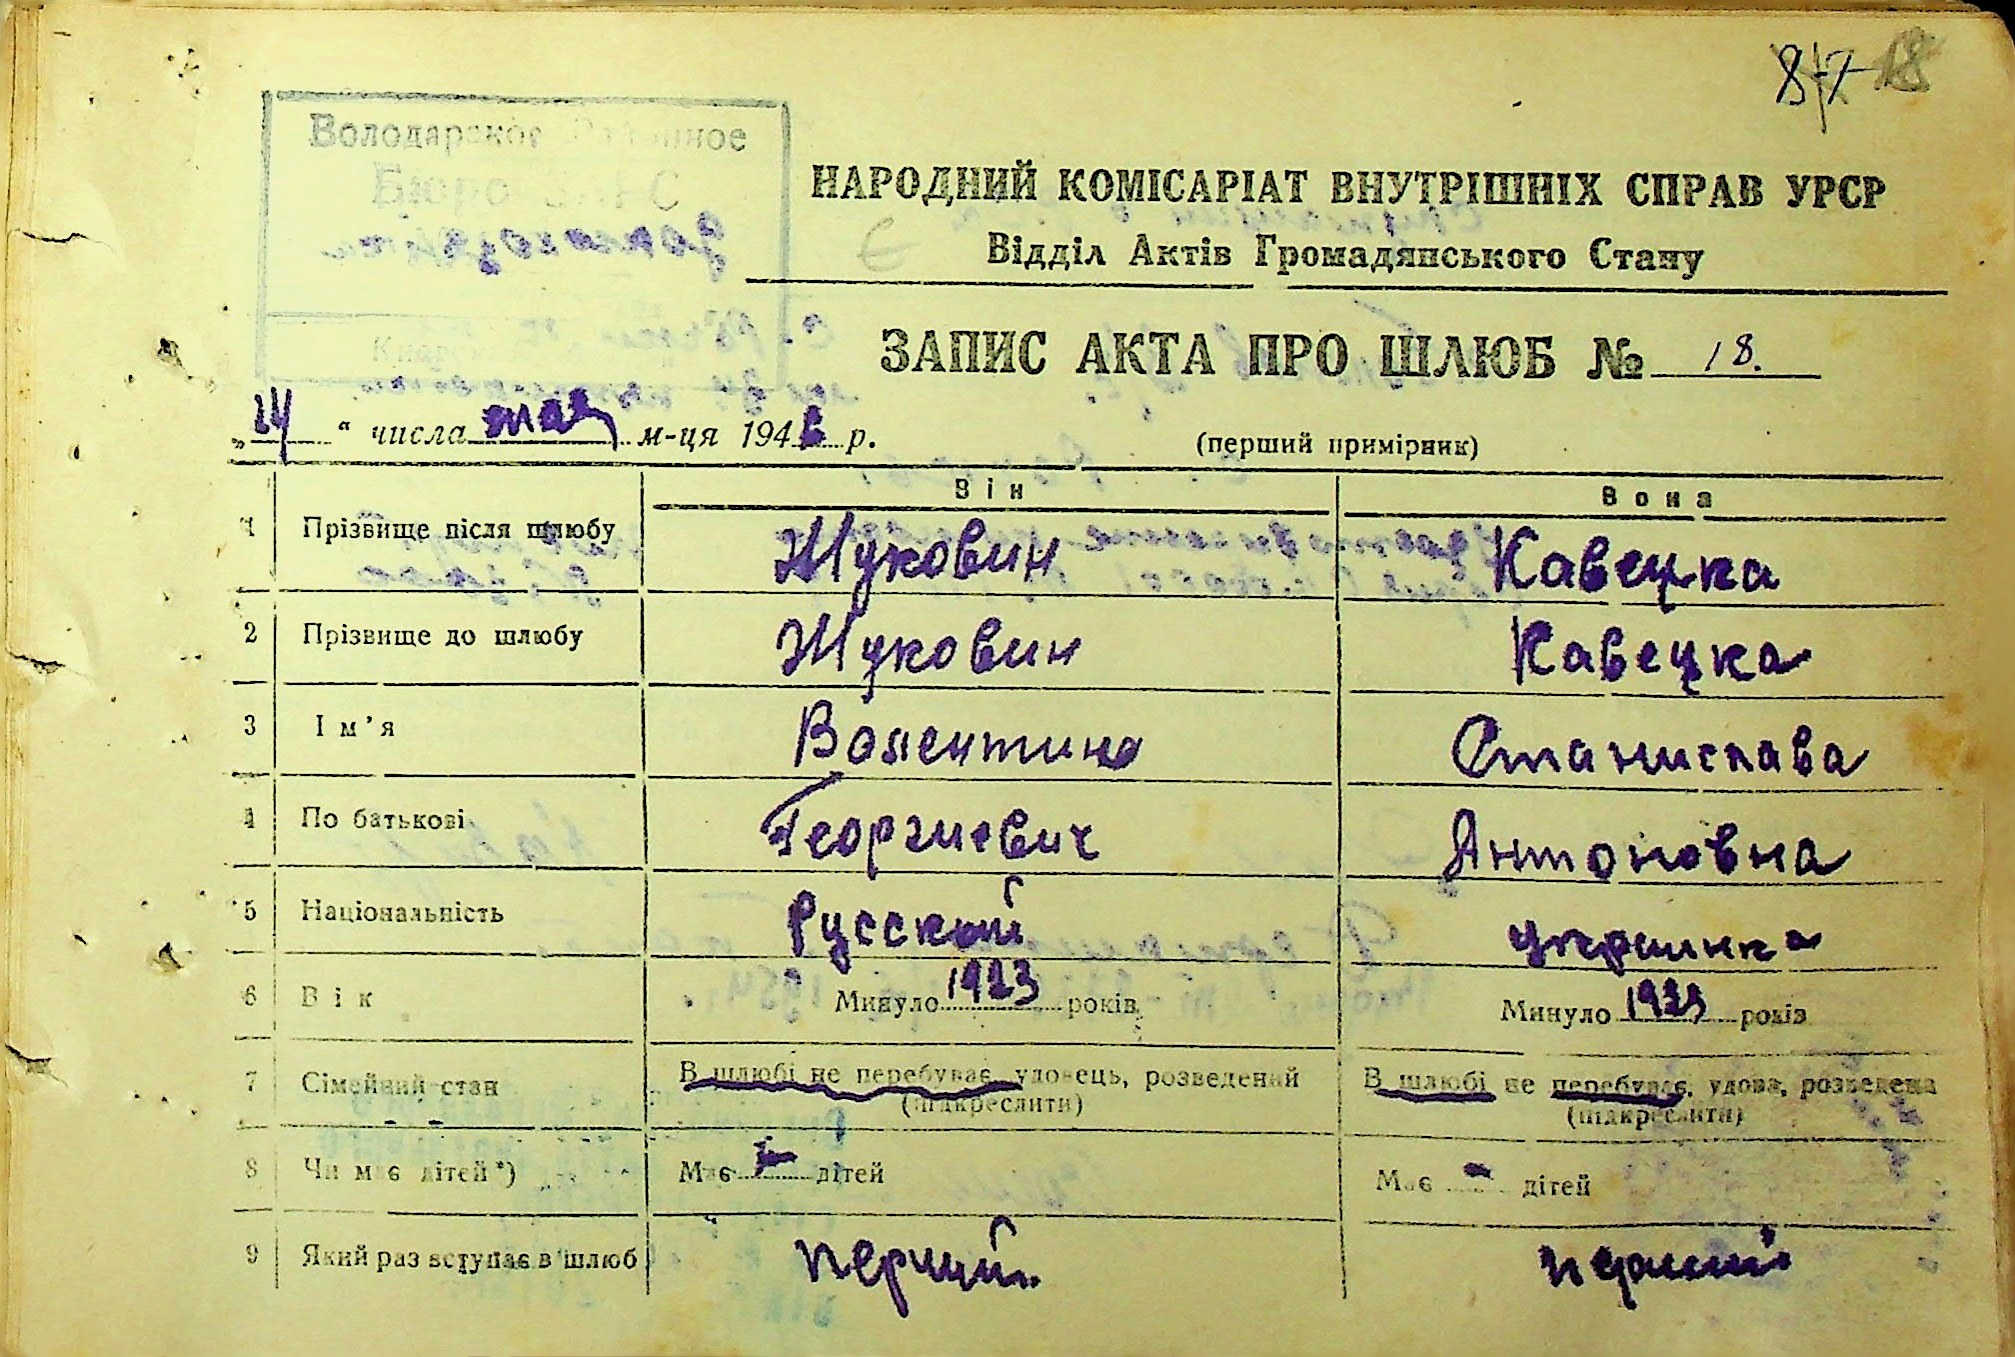 87 18
Володарское Районное
Бюро ЗАГС
НАРОДНИЙ КОМІСАРІАТ ВНУТРІШНІХ СПРАВ УРСР
Відділ Актів Громадянського Стану
ЗАПИС АКТА ПРО ШЛЮБ № 18.
„24“ числа мая м-ця 1946 р. (перший примірник)
Він Вона
1 Прізвище після шлюбу Жуковин Кавецка
2 Прізвище до шлюбу Жуковин Кавецка
3 Ім'я Валентин Станислава
4 По батькові Георгиевич Антоновна
5 Національність Русский украинка
6 Вік Минуло 1923 років Минуло 1923 років
7 Сімейний стан В шлюбі не перебуває, удовець, розведений В шлюбі не перебуває, удова, розведена
(підкреслити) (підкреслити)
8 Чи має дітей*) Має - дітей Має - дітей
9 Який раз вступає в шлюб перший перший